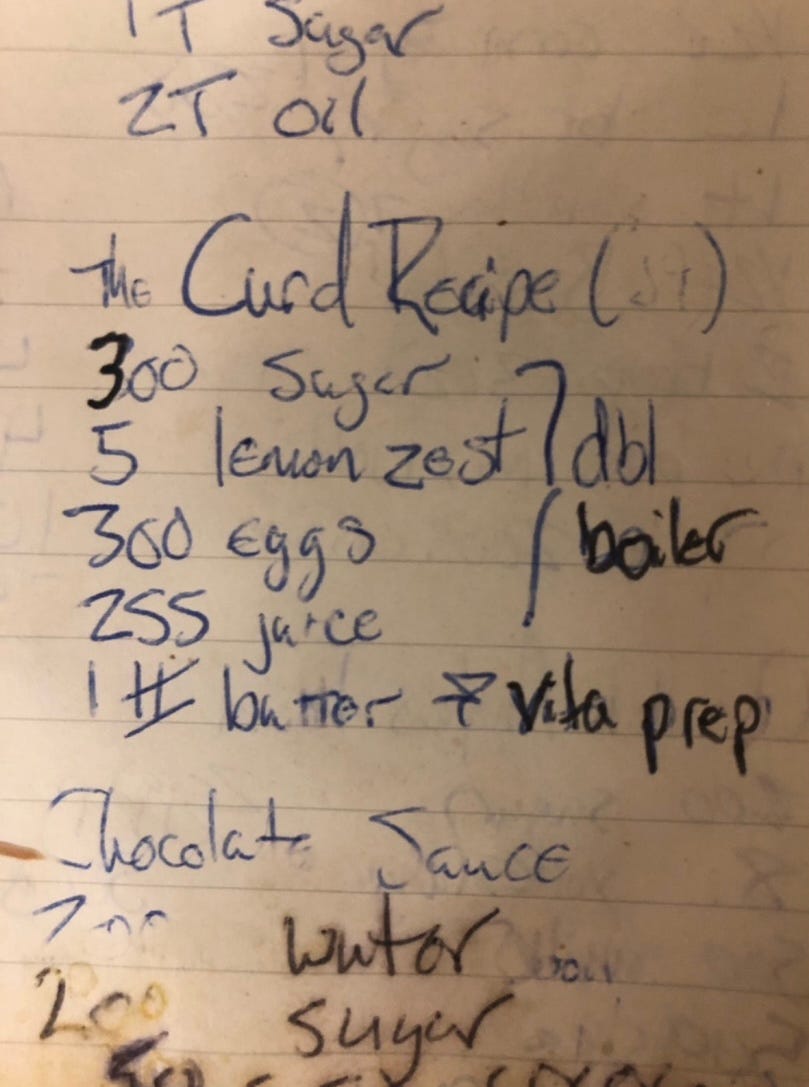 1T Sugar
2T oil
The Curd Recipe (JT)
300 Sugar
5 lemon zest dbl
300 eggs boiler
255 juice
1 # butter vita prep
Chocolate Sauce
200 water
200 sugar
50